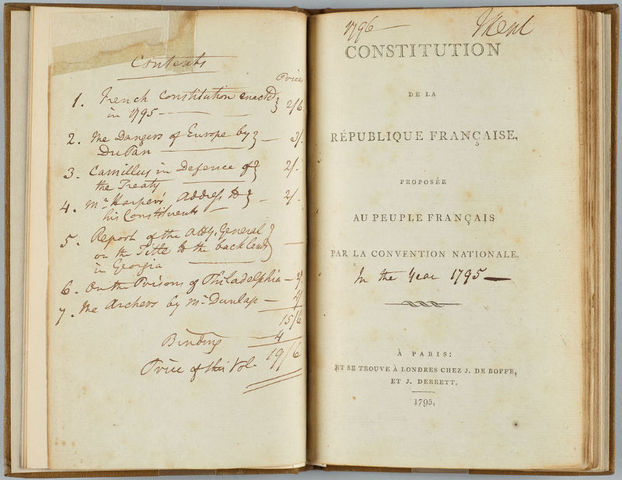 Contents
Price
1. French Constitution enacted
in 1795 — 2/6
2. The Dangers of Europe by
DuPan — 3/.
3. Camillus in Defence of
the Treaty — 2/.
4. Mr Harper's Address to
his Constituents — 2/.
5. Report of the Atty. General
on the Title to the back land
in Georgia —
6. On the Prisons of Philadelphia —
7. The Archers by Mr Dunlap —
15/6
Binding 4
Price of this Vol. 19/6
1796
CONSTITUTION
DE LA
RÉPUBLIQUE FRANÇAISE,
PROPOSÉE
AU PEUPLE FRANÇAIS
PAR LA CONVENTION NATIONALE.
In the Year 1795 —
À PARIS:
ET SE TROUVE À LONDRES CHEZ J. DE BOFFE,
ET J. DEBRETT.
1795.